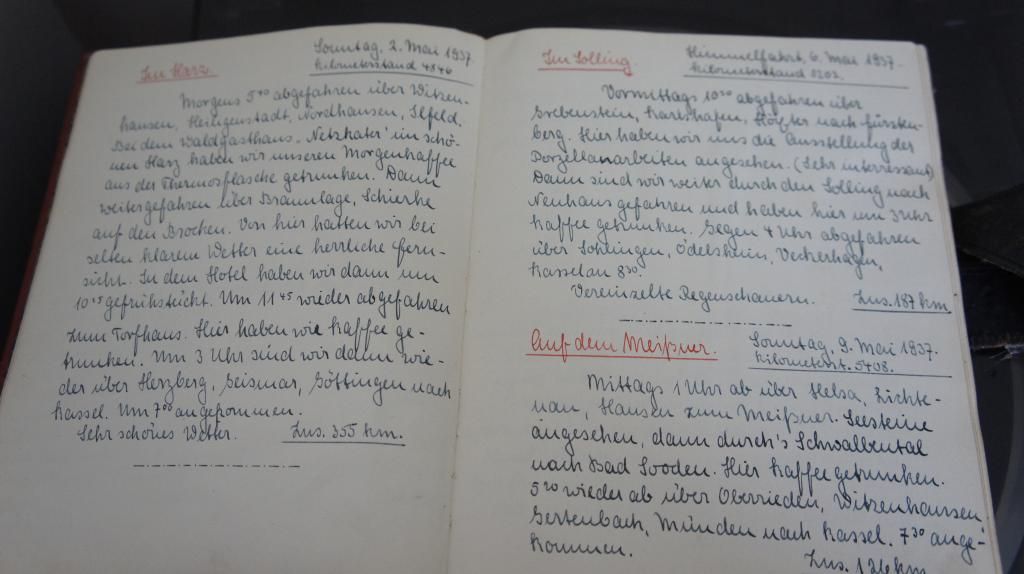 Im Harz.
Sonntag, 2. Mai 1937.
Kilometerstand 4846
Morgens 5⁴⁰ abgefahren über Witzen-
hausen, Heiligenstadt, Nordhausen, Ilfeld.
Bei dem Waldgasthaus „Netzkater" im schö-
nen Harz haben wir unseren Morgenkaffee
aus der Thermosflasche getrunken. Dann
weitergefahren über Braunlage, Schierke
auf den Brocken. Von hier hatten wir bei
selten klarem Wetter eine herrliche Fern-
sicht. In dem Hotel haben wir dann um
10¹⁵ gefrühstückt. Um 11⁴⁵ wieder abgefahren
zum Torfhaus. Hier haben wie Kaffee ge-
trunken. Um 3 Uhr sind wir dann wie-
der über Herzberg, Geismar, Göttingen nach
Kassel. Um 7⁰⁰ angekommen.
Sehr schönes Wetter.
Zus. 355 km.
Im Solling.
Himmelfahrt, 6. Mai 1937.
Kilometerstand 5202.
Vormittags 10²⁰ abgefahren über
Grebenstein, Karlshafen, Höxter nach Fürsten-
berg. Hier haben wir uns die Ausstellung der
Porzellanarbeiten angesehen. (Sehr interessant)
Dann sind wir weiter durch den Solling nach
Neuhaus gefahren und haben hier um 3 Uhr
Kaffee getrunken. Gegen 4 Uhr abgefahren
über Sohlingen, Ödelsheim, Veckerhagen,
Kassel an 8³⁰.
Vereinzelte Regenschauern.
Zus. 187 km
Auf dem Meißner.
Sonntag, 9. Mai 1937.
Kilometerst. 5408.
Mittags 1 Uhr ab über Helsa, Lichte-
nau, Hausen zum Meißner. Seesteine
angesehen, dann durch's Schwalbental
nach Bad Sooden. Hier Kaffee getrunken.
5²⁰ wieder ab über Oberrieden, Witzenhausen,
Gertenbach, Münden nach Kassel. 7³⁰ ange-
kommen.
Zus. 126 km